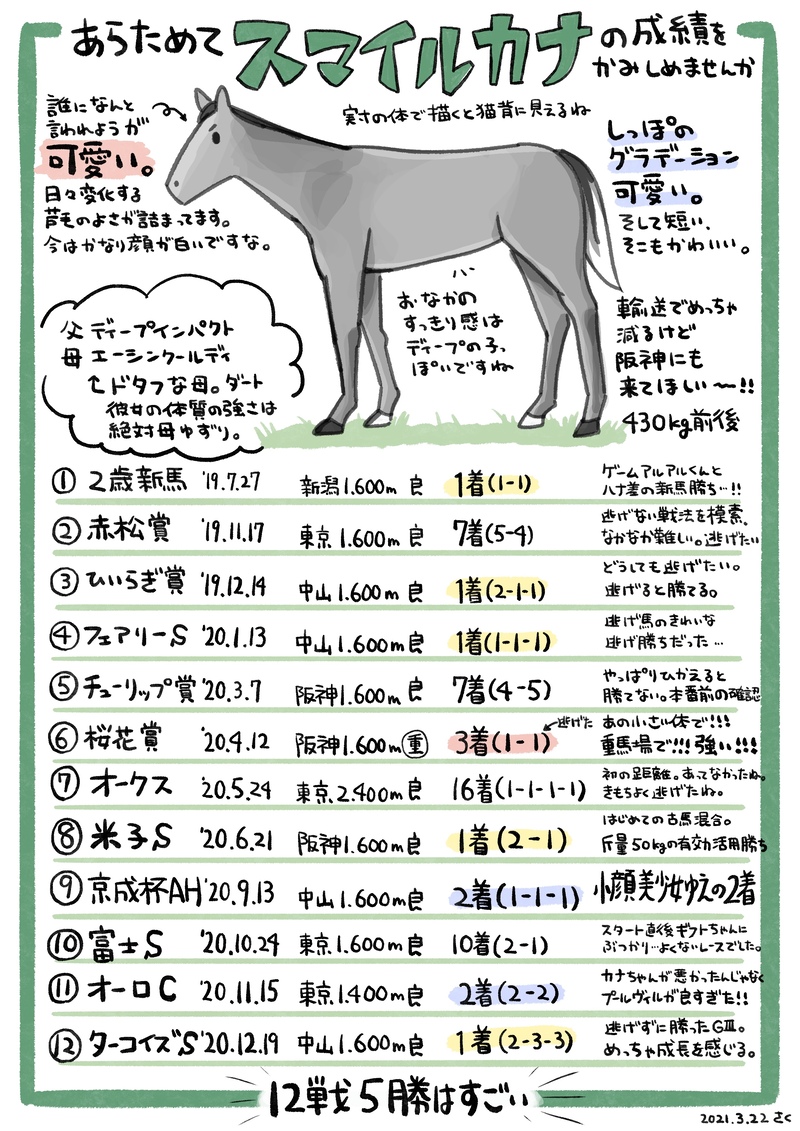 あらためて スマイルカナ の成績を
かみしめませんか
誰になんと
言われようが
可愛い。
日々変化する
芦毛のよさが詰まってます。
今はかなり顔が白いですな。
実さの体で描くと猫背に見えるね
しっぽの
グラデーション
可愛い。
そして短い、
そこもかわいい。
おなかの
すっきり感は
ディープの子っ
ぽいですね
父 ディープインパクト
母 エーシンクールディ
ドタフな母。ダート
彼女の体質の強さは
絶対母ゆずり。
輸送でめっちゃ
減るけど
阪神にも
来てほしい〜!!
430kg前後
① 2歳新馬 '19.7.27 新潟1.600m 良 1着(1-1) ゲームアルアルくんと
ハナ差の新馬勝ち…!!
② 赤松賞 '19.11.17 東京1.600m 良 7着(5-4) 逃げない戦法を模索、
なかなか難しい。逃げたい
③ ひいらぎ賞 '19.12.14 中山1.600m 良 1着(2-1-1) どうしても逃げたい。
逃げると勝てる。
④ フェアリーS '20.1.13 中山1.600m 良 1着(1-1-1) 逃げ馬のきれいな
逃げ勝ちだった…
⑤ チューリップ賞 '20.3.7 阪神1.600m 良 7着(4-5) やっぱりひかえると
勝てない。本番前の確認
⑥ 桜花賞 '20.4.12 阪神1.600m 重 3着(1-1) 逃げた あの小さい体で!!!
重馬場で!!! 強い!!!
⑦ オークス '20.5.24 東京2.400m 良 16着(1-1-1-1) 初の距離。あってなかったね。
きもちよく逃げたね。
⑧ 米子S '20.6.21 阪神1.600m 良 1着(2-1) はじめての古馬混合。
斤量50kgの有効活用勝ち
⑨ 京成杯AH '20.9.13 中山1.600m 良 2着(1-1-1) 小顔美少女ゆえの2着
⑩ 富士S '20.10.24 東京1.600m 良 10着(2-1) スタート直後ギフトちゃんに
ぶつかり…よくないレースでした。
⑪ オーロC '20.11.15 東京1.400m 良 2着(2-2) カナちゃんが悪かったんじゃなく
プールヴィルが良すぎた!!
⑫ ターコイズS '20.12.19 中山1.600m 良 1着(2-3-3) 逃げずに勝ったGⅢ。
めっちゃ成長を感じる。
12戦5勝はすごい
2021.3.22 さく